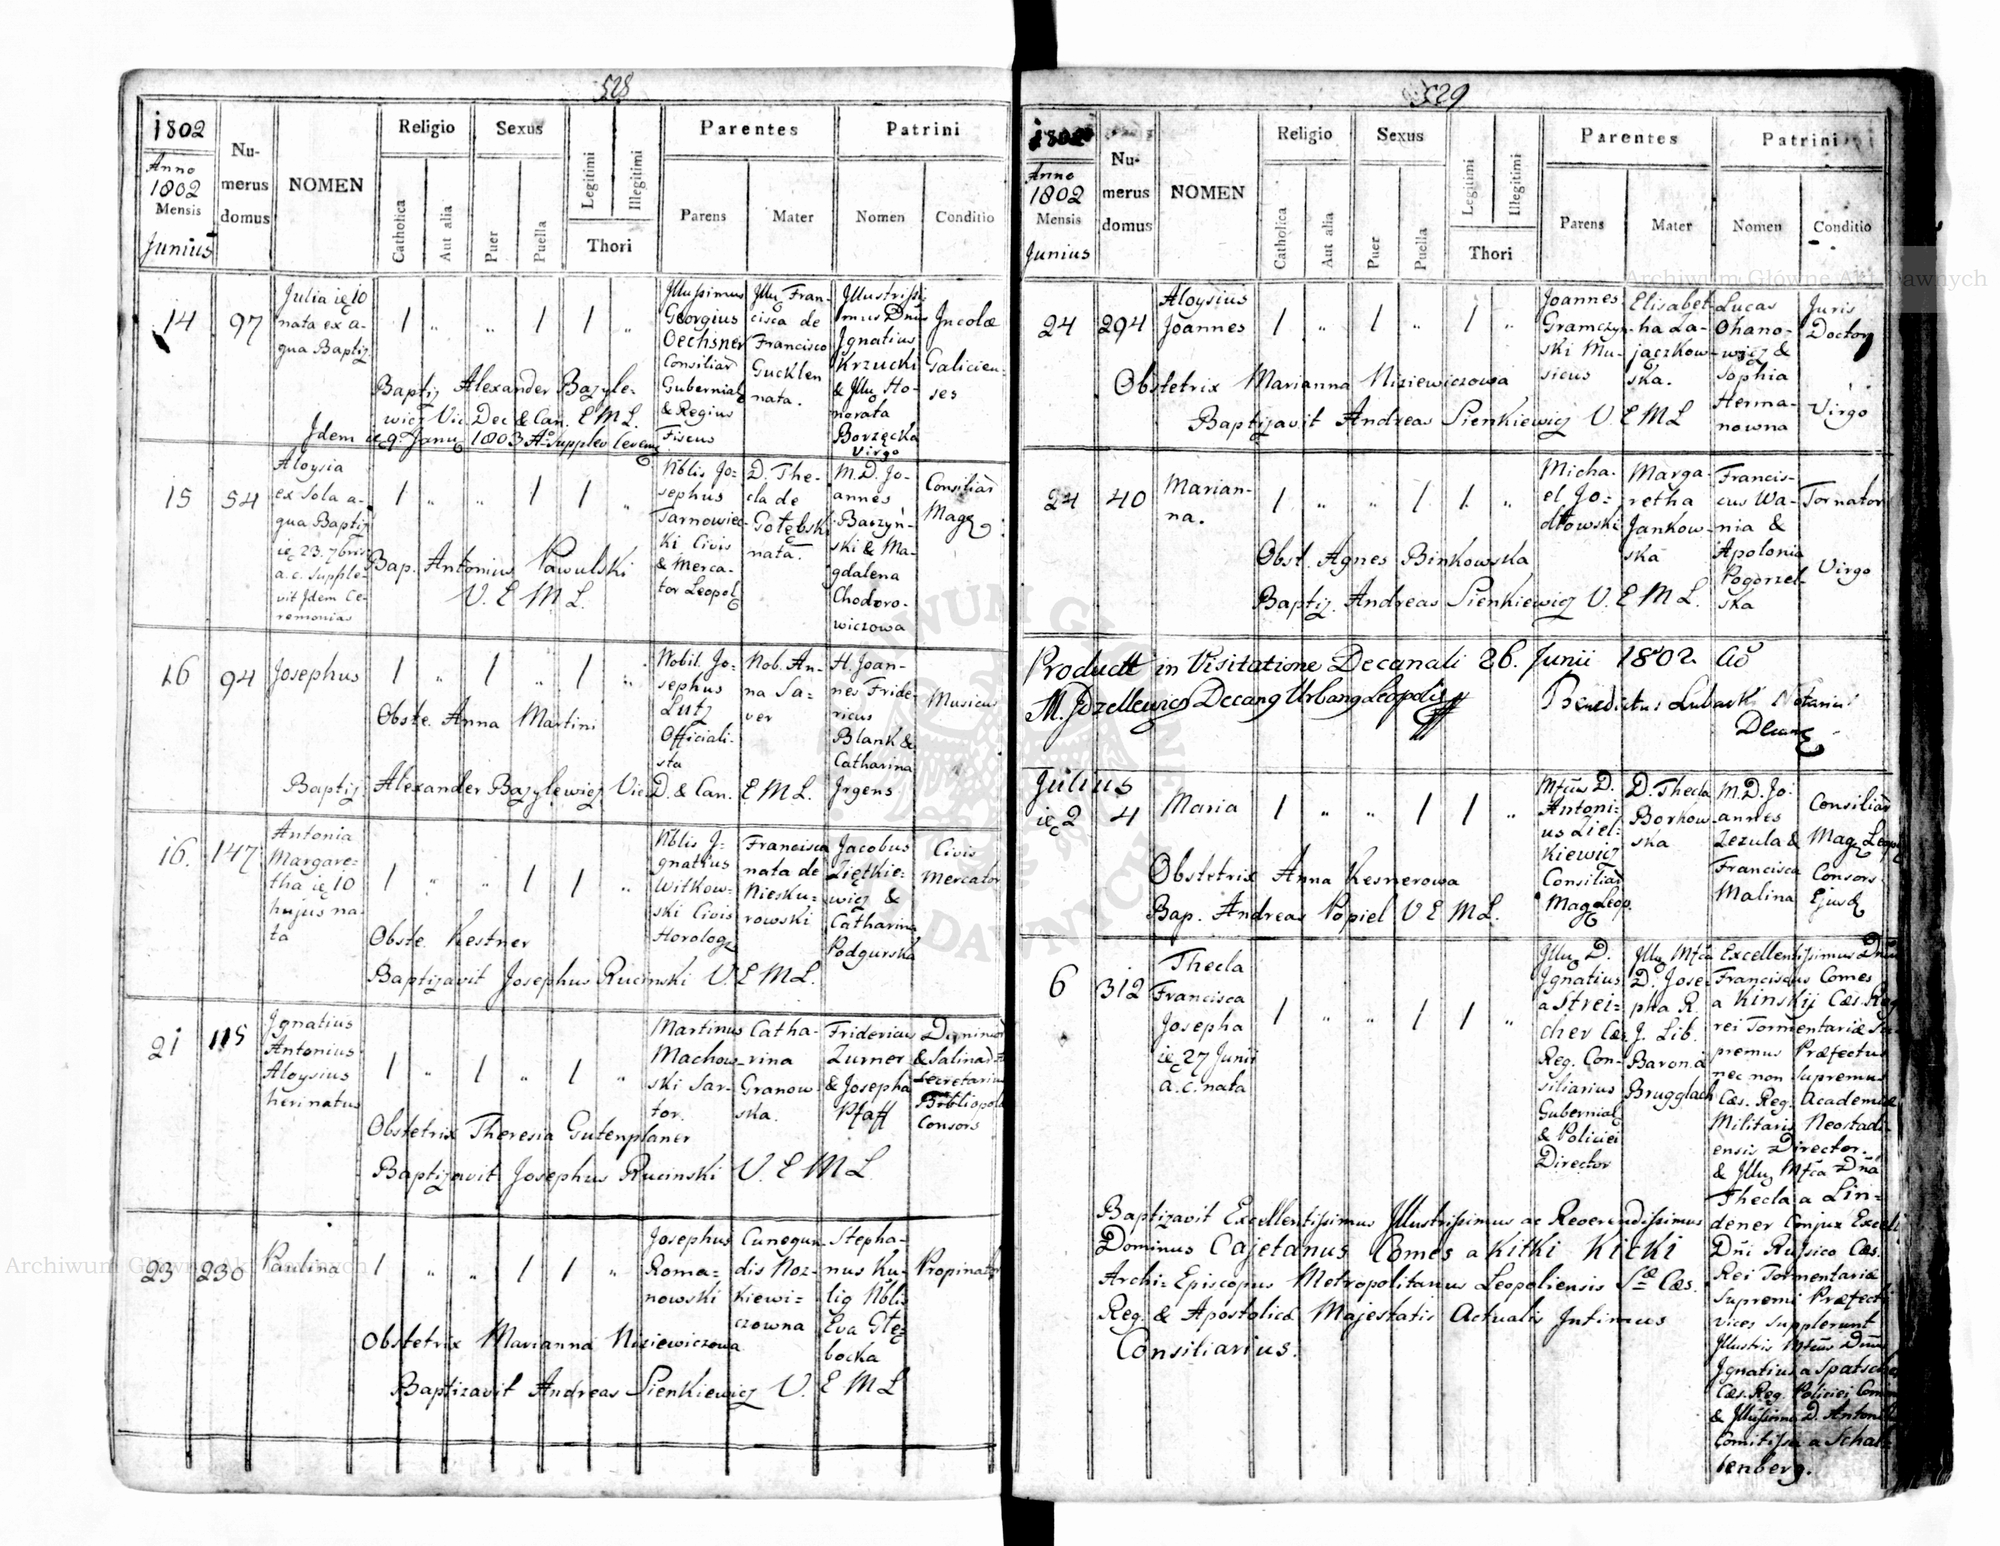 528
1802
Anno
1802
Mensis
Junius
Nu-
merus
domus
NOMEN
Religio
Catholica
Aut alia
Sexus
Puer
Puella
Legitimi
Illegitimi
Thori
Parentes
Parens
Mater
Patrini
Nomen
Conditio
14
97
Julia
nata ex a-
qua Baptiz
Illussimus
Georgius
Oechsner
Consiliar
Gubernial
& Regius
Fiscus
Fran-
cisca de
Francisco
Gucklen
nata.
Illustrissi
mus Dnus
Ignatius
Krzucki
& Ho-
norata
Borzęcka
Virgo
Incolæ
Galicien-
ses
Baptiz Alexander Bazyle-
wicz Vic. Dec & Can. E M L.
15
54
Aloysia
ex sola a-
qua Baptiz
23. 7bris
a.c. supple-
vit Idem Ce-
remonias
Nblis Jo-
sephus
Tarnowiec-
ki Civis
& Merca-
tor Leopol
D. The-
cla de
Gołębski
nata.
M. D. Jo-
annes
Baczyń-
ski & Ma-
gdalena
Chodoro-
wiczowa
Consiliar
Mag
Bap. Antonius Pawulski
V. E M L.
16
94
Josephus
Nobil. Jo-
sephus
Lutz
Officiali-
sta
Nob. An-
na Sa-
ver
H. Joan-
nes Fride-
ricus
Blank &
Catharina
Irgens
Musicus
Obste. Anna Martini
Baptiz. Alexander Bazylewicz Vic D. & Can. E M L.
16.
147
Antonia
Margare-
tha 10
hujus na-
ta
Nblis I-
gnatius
Witkow-
ski Civis
Horolog
Francisca
nata de
Niesku-
rowski
Jacobus
Ziętkie-
wicz &
Catharina
Podgurska
Civis
Mercator
Obste. Kestner
Baptizavit Josephus Rucinski V. E M L.
21
115
Ignatius
Antonius
Aloysius
heri natus
Martinus
Machow-
ski Sar-
tor.
Catha-
rina
Granow-
ska.
Fridericus
Zurner
& Josepha
Pfaff
& Salinar
Secretarius
Bibliopola
Consors
Obstetrix Theresia Gutenplaner
Baptizavit Josephus Rucinski V. E M L
23
230
Paulina
Josephus
Roma-
nowski
Cunegun-
dis Noz-
kiewi-
czowna
Stepha-
nus Ku-
lig Nblis
Eva Głę-
bocka
Propinator
Obstetrix Marianna Niziewiczowa
Baptizavit Andreas Sienkiewicz V. E M L
529
1802
Anno
1802
Mensis
Junius
Nu-
merus
domus
NOMEN
Religio
Catholica
Aut alia
Sexus
Puer
Puella
Legitimi
Illegitimi
Thori
Parentes
Parens
Mater
Patrini
Nomen
Conditio
24
294
Aloysius
Joannes
Joannes
Gramczyn-
ski Mu-
sicus
Elisabet-
ha La-
jączkow-
ska.
Lucas
Ohano-
wicz &
Sophia
Herma-
nowna
Juris
Doctor
Virgo
Obstetrix Marianna Niziewiczowa
Baptizavit Andreas Sienkiewicz V. E M L
24
40
Marian-
na.
Micha-
el Jo-
dłowski
Marga-
retha
Jankow-
ska
Francis-
cus Wa-
nia &
Apolonia
Pogorzel-
ska
Tornator
Virgo
Obst. Agnes Binkowska
Baptiz. Andreas Sienkiewicz V. E M L.
Product in Visitatione Decanali 26. Junii 1802.
Benedictus Lubaski Notarius
Julius
2
4
Maria
D.
Antoni-
us Ziel-
kiewicz
Consiliar
Mag Leop.
D. Thecla
Borkow-
ska
M. D. Jo-
annes
Zezula &
Francisca
Malina
Consiliar
Mag Leopol
Consors
Ejusd
Obstetrix Anna Kesnerowa
Bap. Andreas Popiel V E M L.
6
312
Thecla
Francisca
Josepha
27 Junii
a. c. nata
D.
Ignatius
a Strei-
cher Cæs.
Reg. Con-
siliarius
Gubernial
& Policiei
Director
D. Jose-
pha R.
J. Lib.
Baron. a
Brugglach
Excellentissimus Dnus
Franciscus Comes
a Kinskij Cæs. Reg
rei Tormentariæ Su-
premus Præfectus
nec non Supremus
Cæs. Reg. Academiæ
Militaris Neostadi-
ensis Director.
&
Thecla a Lin-
dener Conjux Excell
Dni Russico Cæs.
Rei Tormentariæ
Supremi Præfecti
vices supplerunt
Ignatius a
Cæs. Reg. Policiei
& D.
Comitissa a Schal-
lenberg.
Baptizavit Excellentissimus Illustrissimus ac Reverendissimus
Dominus Cajetanus Comes a Kitki Kicki
Archi-Episcopus Metropolitanus Leopoliensis Sæ Cæs.
Reg. & Apostolicæ Majestatis Actualis Intimus
Consiliarius.
Archiwum Główne Akt Dawnych